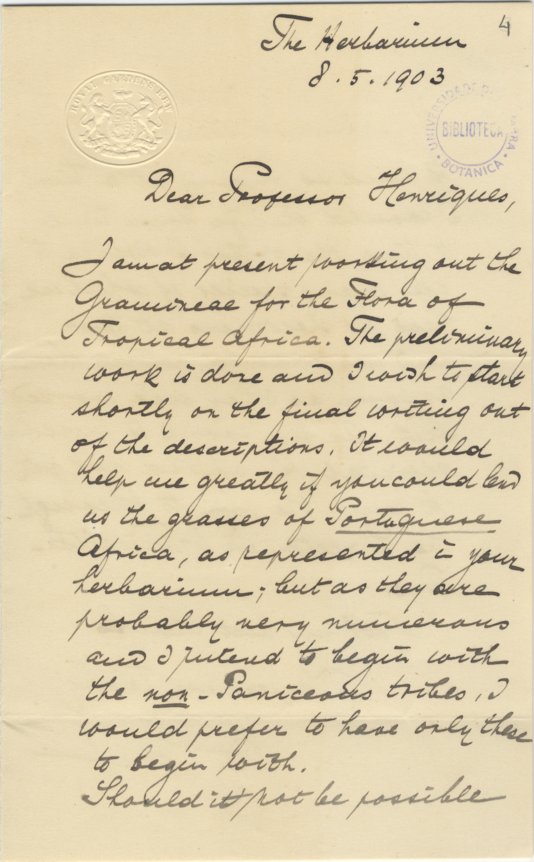 4
The Herbarium
8.5.1903
ROYAL GARDENS KEW
BIBLIOTECA
BOTANICA
Dear Professor Henriques,
I am at present working out the
Gramineae for the Flora of
Tropical Africa. The preliminary
work is done and I wish to start
shortly on the final writing out
of the descriptions. It would
help me greatly if you could lend
us the grasses of Portuguese
Africa, as represented in your
herbarium; but as they are
probably very numerous
and I intend to begin with
the non-Paniceous tribes, I
would prefer to have only these
to begin with.
Should it not be possible